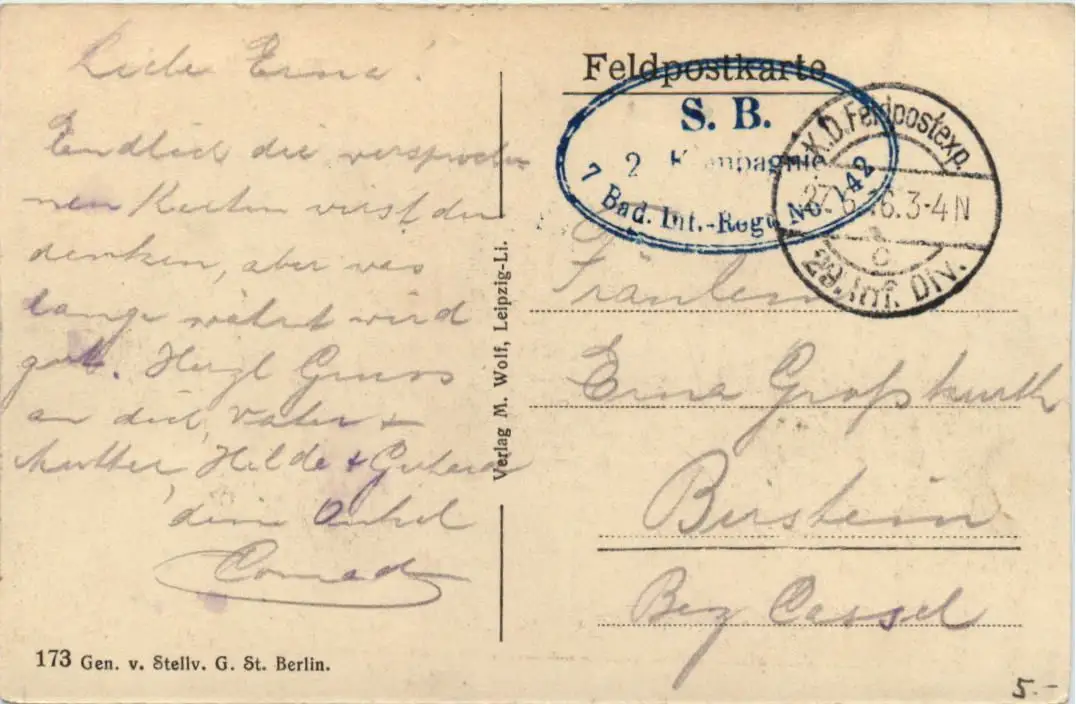 Liebe Erna!
Endlich die versproche
nen Karten wirst du
denken, aber was
lange währt wird
gut. Herzl Gruss
an dich, Vater +
Mutter, Hilde +
deine Onkel
Conrad
173 Gen. v. Stellv. G. St. Berlin.
Verlag M. Wolf, Leipzig-Li.
Feldpostkarte
S. B.
2 Kompagnie
7 Bad. Inf.-Regt No. 142
K.D. Feldpostexp.
27. 6. 16. 3-4 N
29. Inf. Div.
Fräulein
Erna Großkurth
Birstein
Bez Cassel
5.-